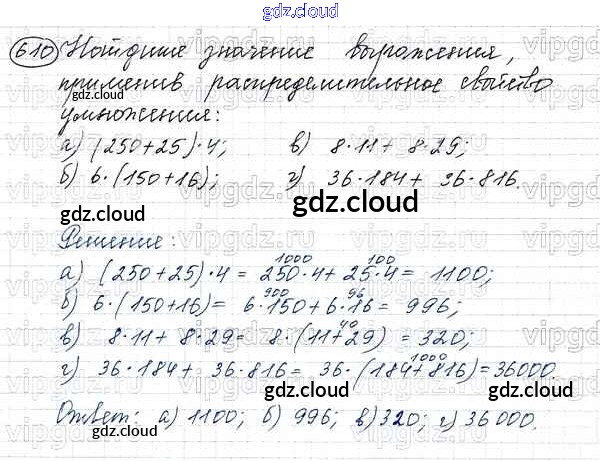 gdz.cloud
610 Найдите значение выражения,
применив распределительное свойство
gdz.cloud gdz.cloud
умножения:
а) (250+25)·4; в) 8·11+ 8·29;
б) 6·(150+16); г) 36·184+ 36·816.
gdz.cloud gdz.cloud
Решение:
1000 100
а) (250+25)·4 = 250·4+ 25·4 = 1100;
900 96
б) 6·(150+16)= 6·150+6·16 = 996;
40
в) 8·11+ 8·29= 8·(11+29) = 320;
1000
г) 36·184+ 36·816= 36·(184+816)=36000
gdz.cloud gdz.cloud
Ответ: а) 1100; б) 996; в)320; г)36000.
gdz.cloud gdz.cloud
vipgdz.cloud